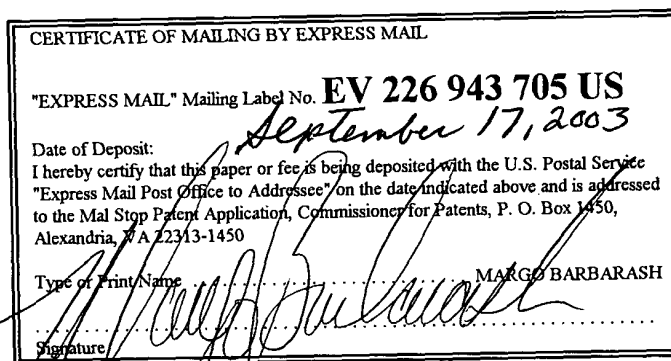 CERTIFICATE OF MAILING BY EXPRESS MAIL
"EXPRESS MAIL" Mailing Label No. EV 226 943 705 US
September 17, 2003
Date of Deposit:
I hereby certify that this paper or fee is being deposited with the U.S. Postal Service
"Express Mail Post Office to Addressee" on the date indicated above and is addressed
to the Mal Stop Patent Application, Commissioner for Patents, P. O. Box 1450,
Alexandria, VA 22313-1450
Type or Print Name ........................ MARGO BARBARASH
Signature